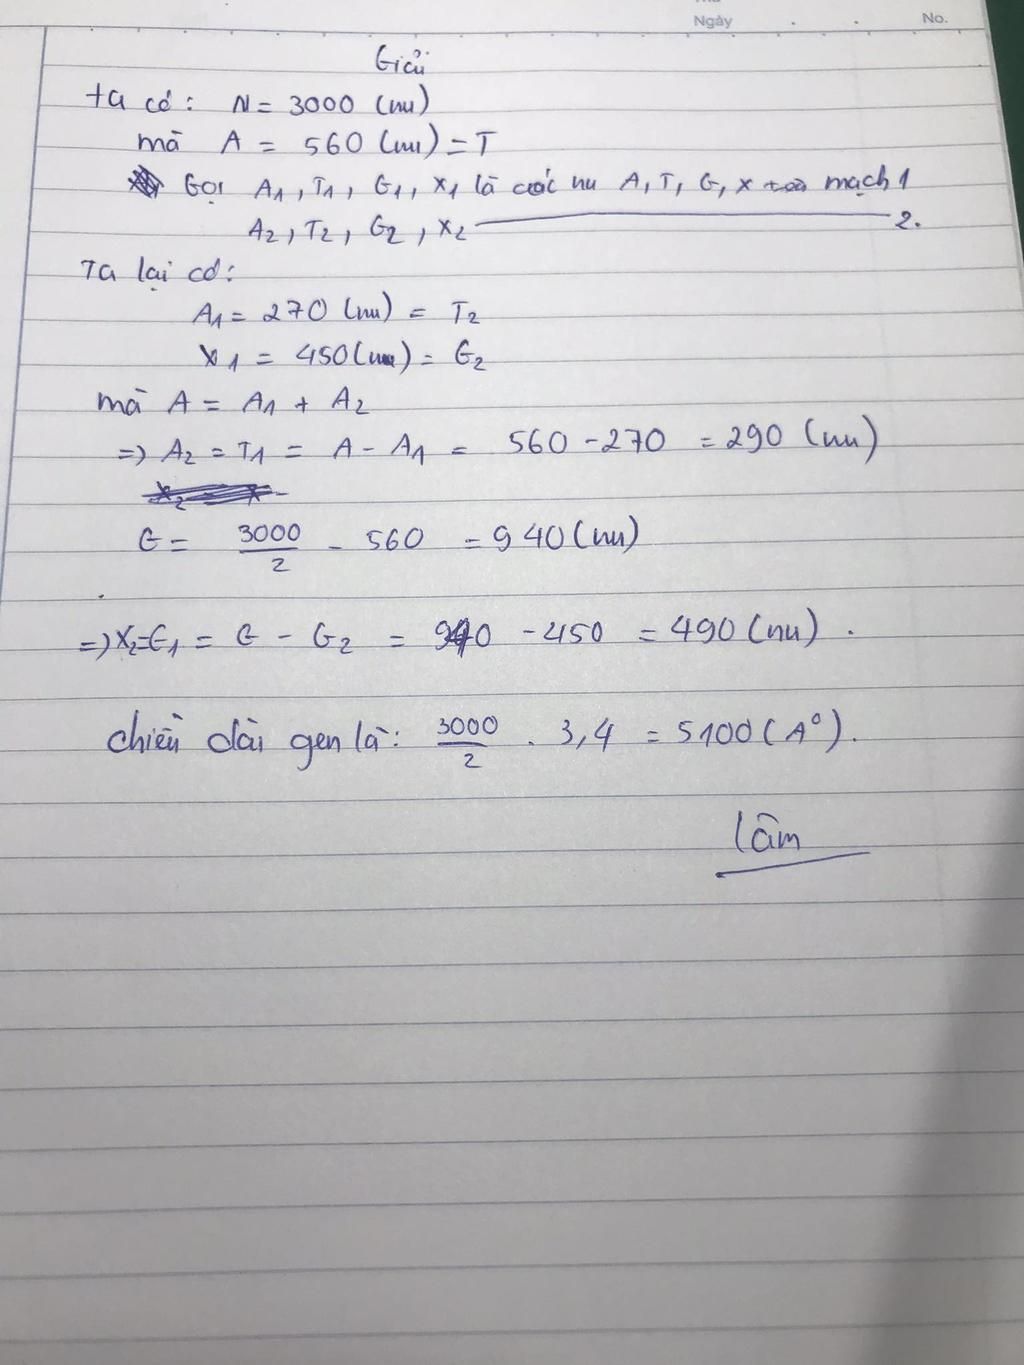 Ngày . . No.
Giải
ta có : N = 3000 (nu)
mà A = 560 (nu) = T
Gọi A1 , T1 , G1 , X1 là các nu A, T, G, X mạch 1
A2 , T2 , G2 , X2 ———— 2.
Ta lại có :
A1 = 270 (nu) = T2
X1 = 450 (nu) = G2
mà A = A1 + A2
=> A2 = T1 = A - A1 = 560 - 270 = 290 (nu)
G = 3000/2 - 560 = 940 (nu)
=> X2=G1 = G - G2 = 940 - 450 = 490 (nu) .
chiều dài gen là : 3000/2 . 3,4 = 5100 (A°).
Lâm